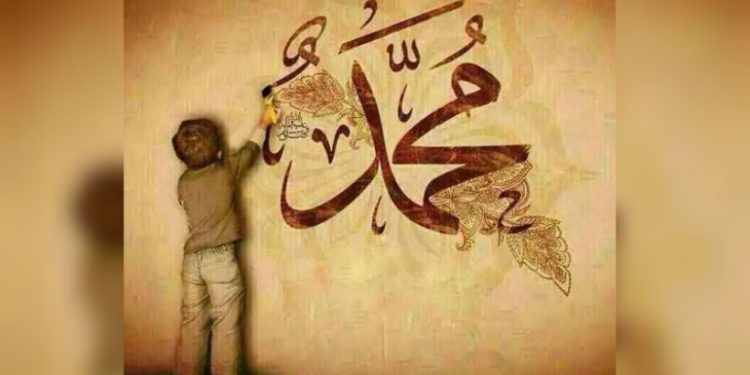 مُحمَّدُ